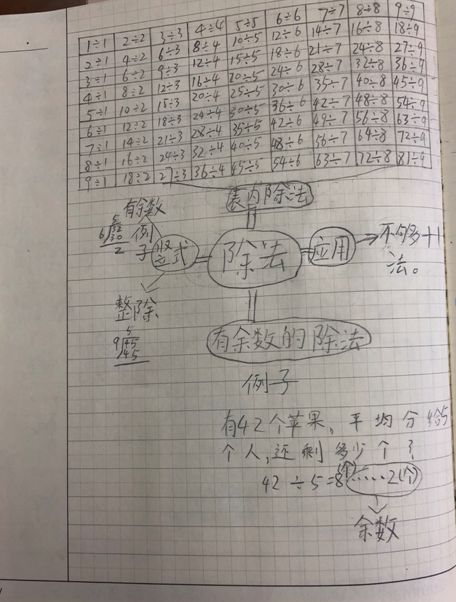 1÷1 2÷2 3÷3 4÷4 5÷5 6÷6 7÷7 8÷8 9÷9
2÷1 4÷2 6÷3 8÷4 10÷5 12÷6 14÷7 16÷8 18÷9
3÷1 6÷2 9÷3 12÷4 15÷5 18÷6 21÷7 24÷8 27÷9
4÷1 8÷2 12÷3 16÷4 20÷5 24÷6 28÷7 32÷8 36÷9
5÷1 10÷2 15÷3 20÷4 25÷5 30÷6 35÷7 40÷8 45÷9
6÷1 12÷2 18÷3 24÷4 30÷5 36÷6 42÷7 48÷8 54÷9
7÷1 14÷2 21÷3 28÷4 35÷5 42÷6 49÷7 56÷8 63÷9
8÷1 16÷2 24÷3 32÷4 40÷5 48÷6 56÷7 64÷8 72÷9
9÷1 18÷2 27÷3 36÷4 45÷5 54÷6 63÷7 72÷8 81÷9
表内除法
有余数
例子
5
6 32
30
2
竖式
除法
应用
不够多+1
法。
整除
5
9 45
45
有余数的除法
例子
有42个苹果,平均分给5
个人,还剩多少个?
42÷5=8(个)……2(个)
余数